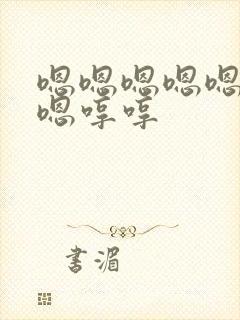 嗯嗯嗯嗯嗯
嗯哼哼
书湄